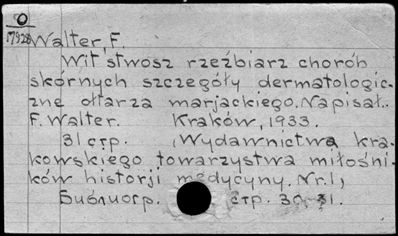 0
17928
Walter, F.
Wit stwosz rzeźbiarz chorób
skórnych szczegóły dermatologic-
zne ołtarza marjackiego. Napisał.
F. Walter. Kraków, 1933.
31 стр. (Wydawnictwa kra-
kowskiego towarzystwa miłośni-
ków historji medycyny. Nr. 1)
Библиогр. стр. 30-31.